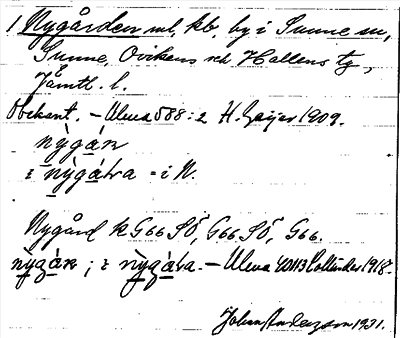 1 Nygården ml, kb. by i Sunne sn,
Sunne, Ovikens och Hallens tg,
Jämtl. l.
Obekant. – Uleva 588:2 H. Geijer 1909.
nỳgàṇ
i nỳgàra = i N.
Nygård k G66 SÖ, G66 SÖ, G66.
nỳgàṇ ; i nỳgàra. – Uleva Collinder 1918.
Johan Anderzon 1931.